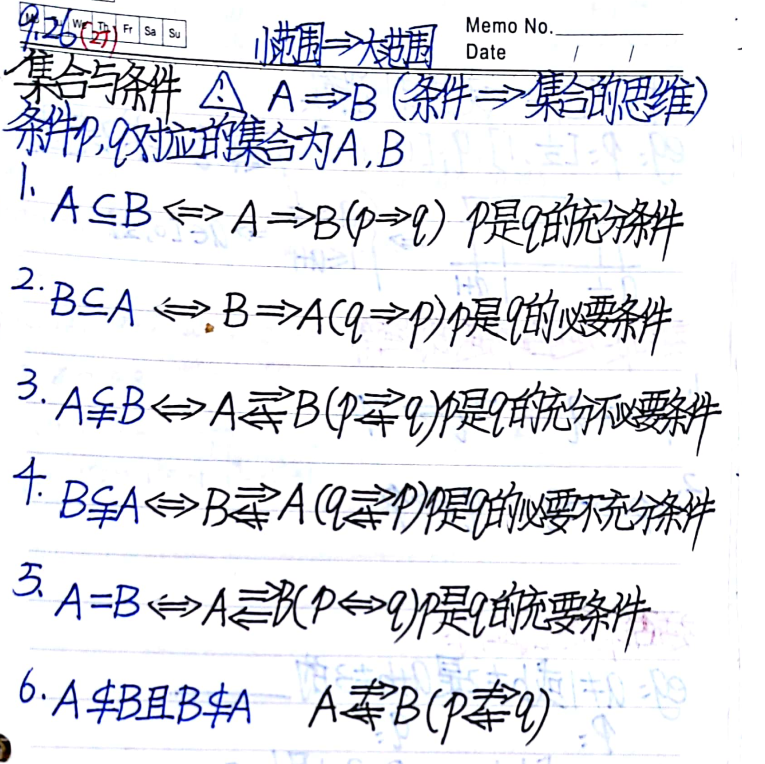 9.26(27) We Th Fr Sa Su
小范围⇒大范围 Memo No.
Date / /
集合与条件 ⚠ A⇒B(条件⇒集合的思维)
条件p,q对应的集合为A,B
1. A⊆B⇔A⇒B(p⇒q) p是q的充分条件
2. B⊆A⇔B⇒A(q⇒p)p是q的必要条件
3. A⫋B⇔A⇒⇍B(p⇒⇍q)p是q的充分不必要条件
4. B⫋A⇔B⇒⇍A(q⇒⇍p)p是q的必要不充分条件
5. A=B⇔A⇒⇐B(p⇔q)p是q的充要条件
6. A⊈B且B⊈A A⇏⇍B(p⇏⇍q)